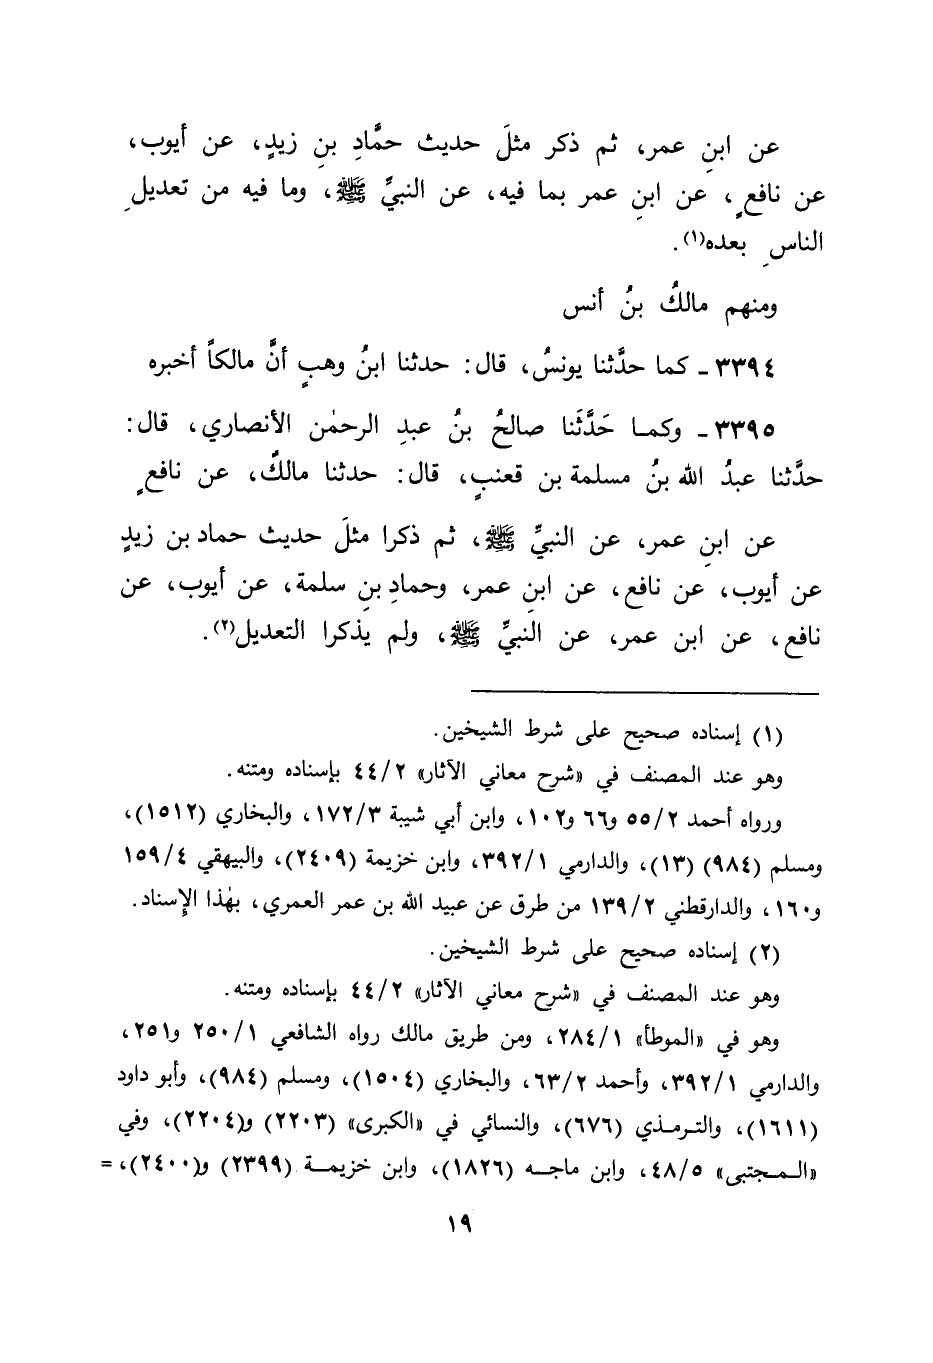 عن ابنِ عمر، ثم ذكر مثلَ حديث حمَّادِ بنِ زيدٍ، عن أيوب،
عن نافعٍ، عن ابنِ عمر بما فيه، عن النبيِّ ﷺ، وما فيه من تعديلِ
الناسِ بعده(١).
ومنهم مالكُ بنُ أنس
٣٣٩٤ ـ كما حدَّثنا يونسُ، قال: حدثنا ابنُ وهبٍ أنَّ مالكاً أخبره
٣٣٩٥ ـ وكمـا حَدَّثَنا صالحُ بنُ عبدِ الرحمٰن الأنصاري، قال:
حدَّثنا عبدُ الله بنُ مسلمة بن قعنبٍ، قال: حدثنا مالكٌ، عن نافعٍ
عن ابنِ عمر، عن النبيِّ ﷺ، ثم ذكرا مثلَ حديث حماد بن زيدٍ
عن أيوب، عن نافع، عن ابنِ عمر، وحمادِ بنِ سلمة، عن أيوب، عن
نافع، عن ابن عمر، عن النبيِّ ﷺ، ولم يذكرا التعديل(٢).
(١) إسناده صحيح على شرط الشيخين.
وهو عند المصنف في «شرح معاني الآثار» ٤٤/٢ بإسناده ومتنه.
ورواه أحمد ٥٥/٢ و٦٦ و١٠٢، وابن أبي شيبة ١٧٢/٣، والبخاري (١٥١٢)،
ومسلم (٩٨٤) (١٣)، والدارمي ٣٩٢/١، وابن خزيمة (٢٤٠٩)، والبيهقي ١٥٩/٤
و١٦٠، والدارقطني ١٣٩/٢ من طرق عن عبيد الله بن عمر العمري، بهٰذا الإِسناد.
(٢) إسناده صحيح على شرط الشيخين.
وهو عند المصنف في «شرح معاني الآثار» ٤٤/٢ بإسناده ومتنه.
وهو في «الموطأ» ٢٨٤/١، ومن طريق مالك رواه الشافعي ٢٥٠/١ و٢٥١،
والدارمي ٣٩٢/١، وأحمد ٦٣/٢، والبخاري (١٥٠٤)، ومسلم (٩٨٤)، وأبو داود
(١٦١١)، والتـرمـذي (٦٧٦)، والنسائي في «الكبرى» (٢٢٠٣) و(٢٢٠٤)، وفي
«الـمـجتبى» ٤٨/٥، وابن ماجـه (١٨٢٦)، وابن خزيمـة (٢٣٩٩) و(٢٤٠٠)، =
١٩